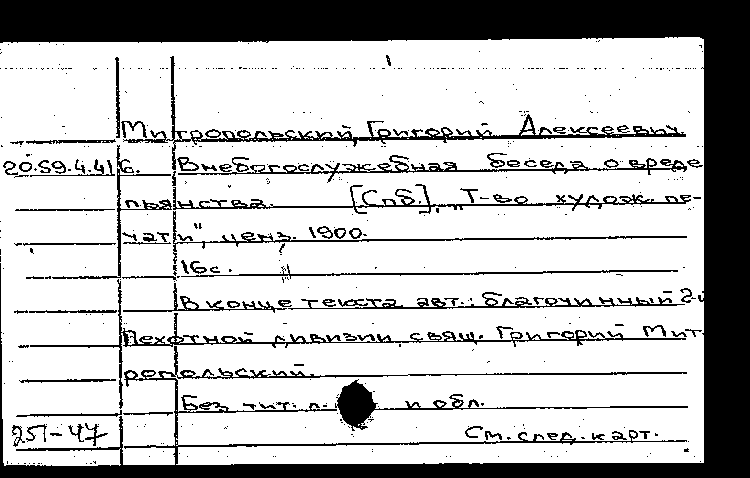 Митропольский, Григорий Алексеевич
20.59.4.416. Внебогослужебная беседа о вреде
пьянства. [Спб.], „Т-во худож. пе-
чати", ценз. 1900.
16с.
В конце текста авт.: благочинный 2-й
Пехотной дивизии свящ. Григорий Мит-
ропольский.
Без тит. л. и обл.
251-47 См. след. карт.